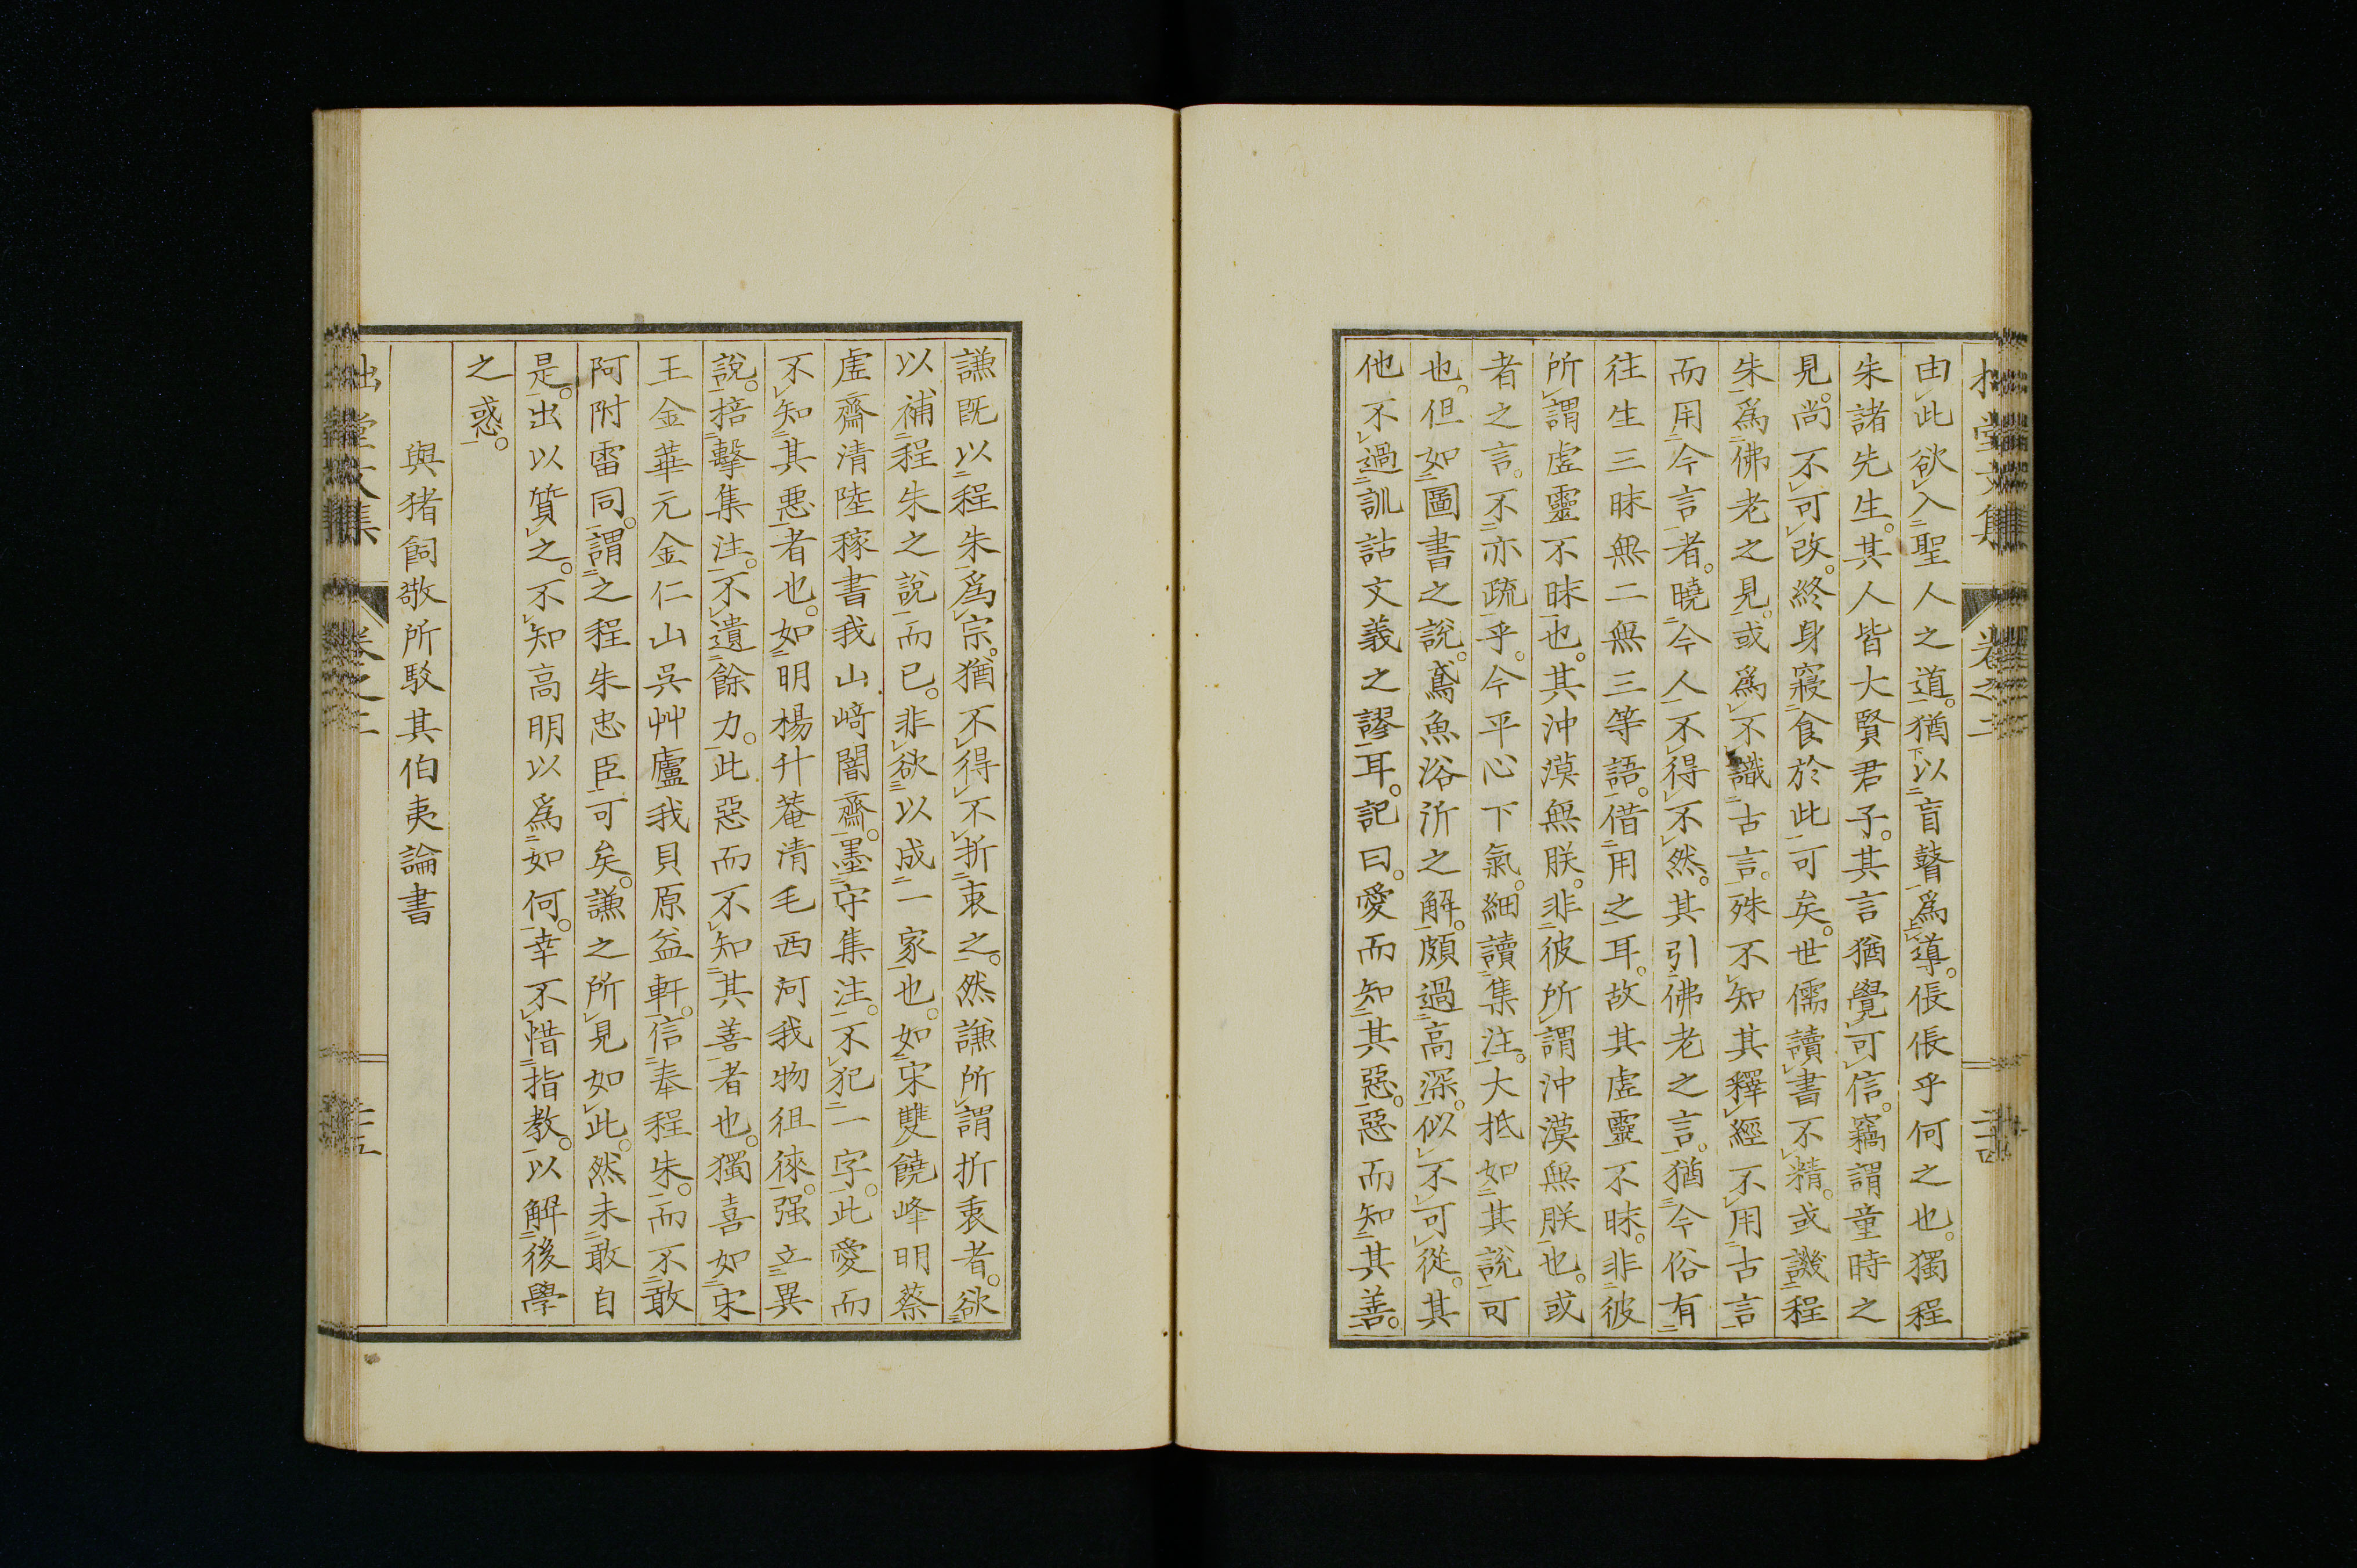 由此欲入聖人之道。猶以盲瞽爲導。倀倀乎何之也。獨程
朱諸先生。其人皆大賢君子。其言猶覺可信。竊謂童時之
見。尚不可改。終身寢食於此可矣。世儒讀書不精。或譏程
朱爲佛老之見。或爲不識古言。殊不知其釋經不用古言
而用今言者。曉今人不得不然。其引佛老之言。猶今俗有
往生三昧無二無三等語。借用之耳。故其虛靈不昧。非彼
所謂虛靈不昧也。其沖漠無朕。非彼所謂沖漠無朕也。或
者之言。不亦疏乎。今平心下氣。細讀集注。大抵如其說可
也。但如圖書之說。鳶魚浴沂之解。頗過高深。似不可從。其
他不過訓詁文義之謬耳。記曰。愛而知其惡。惡而知其善。
謙既以程朱爲宗。猶不得不折衷之。然謙所謂折衷者。欲
以補程朱之說而已。非欲以成一家也。如宋雙饒峰明蔡
虛齋清陸稼書我山﨑闇齋。墨守集注。不犯一字。此愛而
不知其惡者也。如明楊升菴清毛西河我物徂徠。强立異
說。掊擊集注。不遺餘力。此惡而不知其善者也。獨喜如宋
王金華元金仁山吳艸廬我貝原益軒。信奉程朱。而不敢
阿附雷同。謂之程朱忠臣可矣。謙之所見如此。然未敢自
是。出以質之。不知高明以爲如何。幸不惜指教。以解後學
之惑。
與猪飼敬所駁其伯夷論書
拙堂文集 卷之二